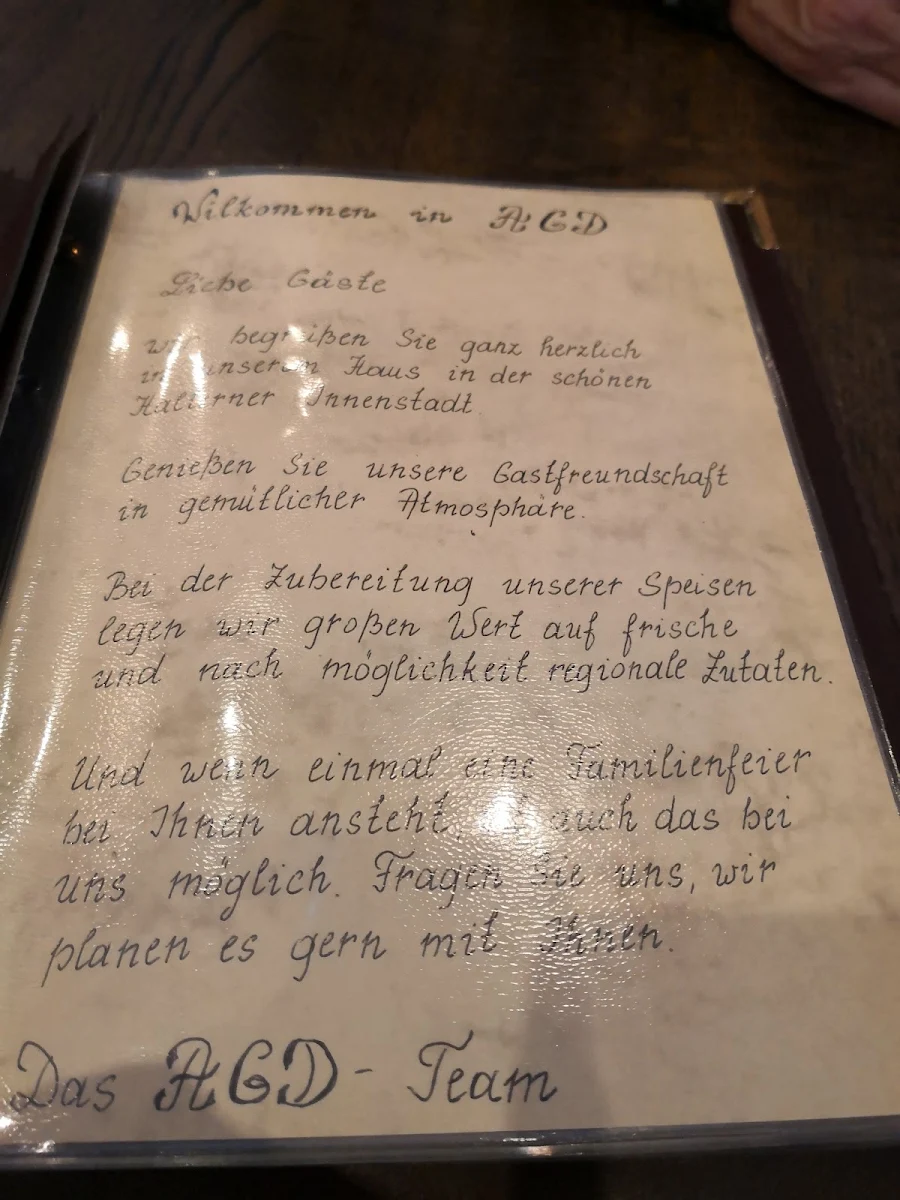 Wilkommen in AGD
Liebe Gäste
wir begrüßen Sie ganz herzlich
in unserem Haus in der schönen
Halterner Innenstadt
Genießen Sie unsere Gastfreundschaft
in gemütlicher Atmosphäre.
Bei der Zubereitung unserer Speisen
legen wir großen Wert auf frische
und nach möglichkeit regionale Zutaten.
Und wenn einmal eine Familienfeier
bei Ihnen ansteht, ist auch das bei
uns möglich. Fragen Sie uns, wir
planen es gern mit Ihnen.
Das AGD - Team